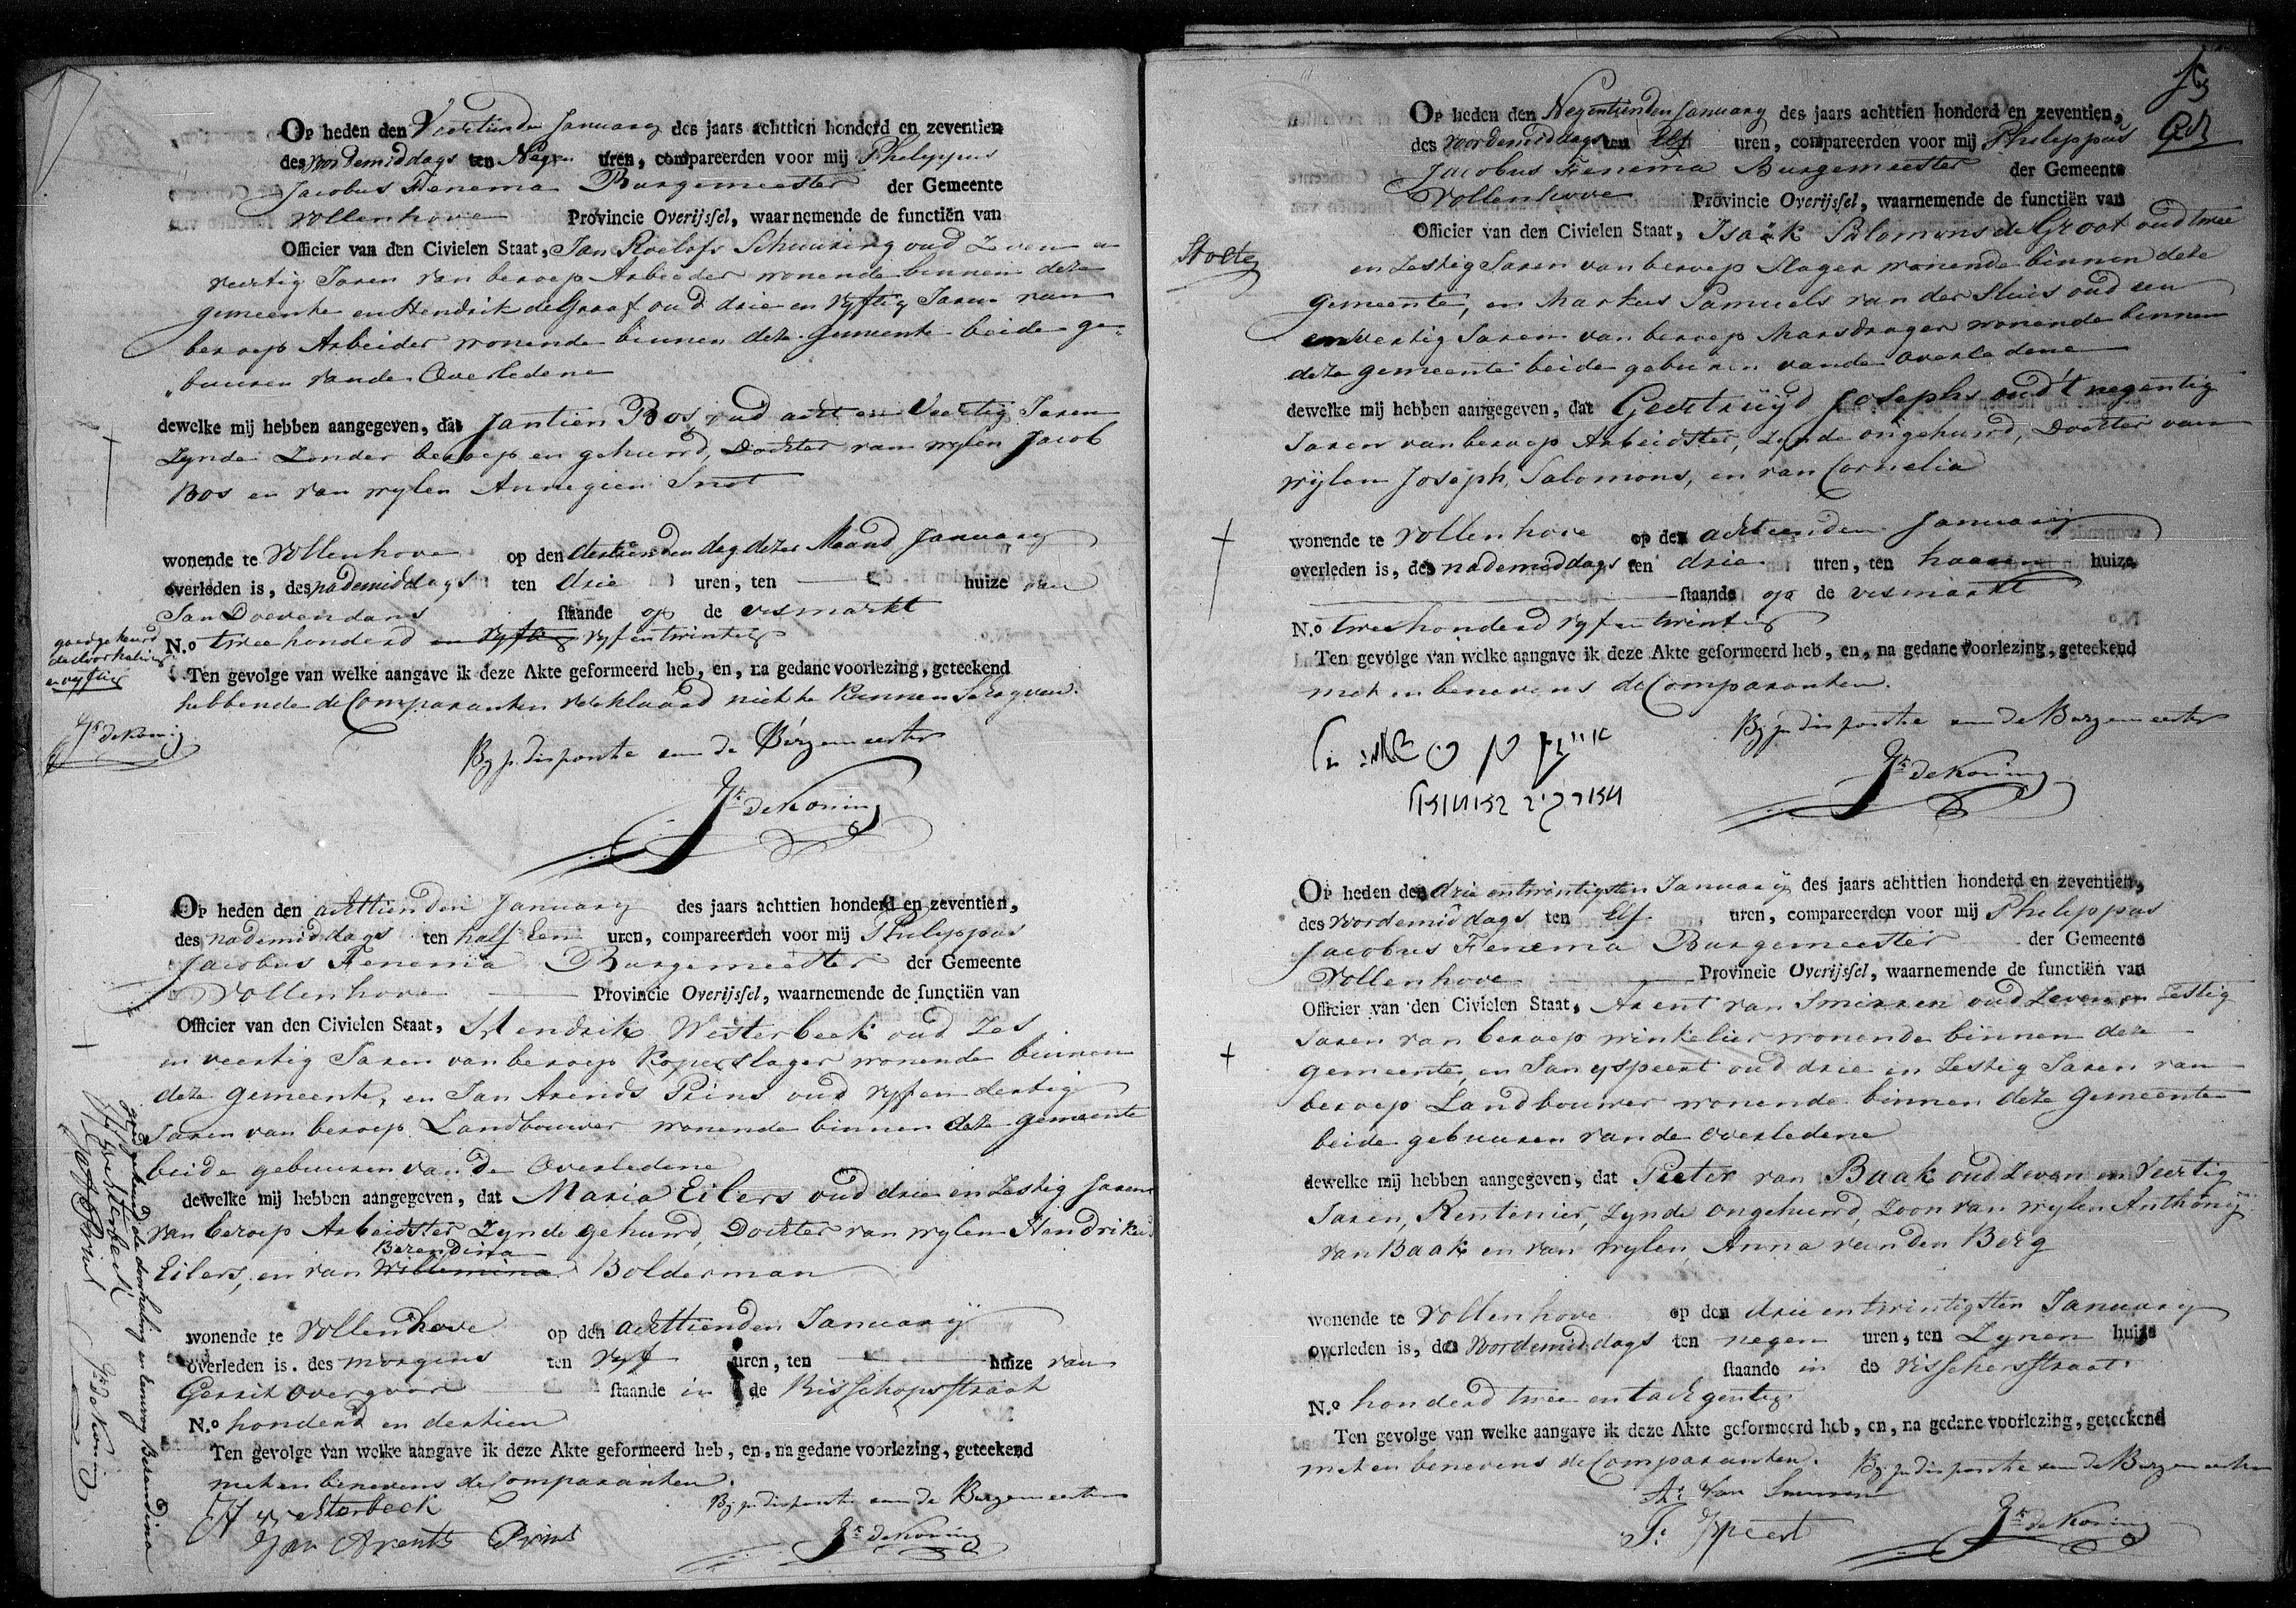 Op heden den Veertienden January des jaars achttien honderd en zeventien
des voordemiddags ten Negen uren, compareerden voor mij Philippus
Jacobus Fenema Burgemeester der Gemeente
Vollenhove Provincie Overijssel, waarnemende de functiën van
Officier van den Civielen Staat, Jan Roelofs Schuuring oud Zeven en
veertig Jaren van beroep Arbeider wonende binnen deze
gemeente en Hendrik de Graaf oud drie en vyftig Jaren van
beroep Arbeider wonende binnen deze gemeente beide ge„
„buuren vande Overledene
dewelke mij hebben aangegeven, dat Jantien Bos oud acht en Veertig Jaren
Zynde Zonder beroep en gehuwd, Dochter van wylen Jacob
Bos en van wylen Annegien Snot
wonende te Vollenhove op den dertienden dag dezer Maand January
overleden is, des nademiddags ten drie uren, ten huize van
Jan Doevendans staande op de vismarkt
N.o twee honderd en vyftig vyf en twintig
Ten gevolge van welke aangave ik deze Akte geformeerd heb, en, na gedane voorlezing, geteekend
hebbende de Comparanten verklaard niet te kunnen Schryven.
goedgekeurd
de doorhaling
en vyftig
Jk de Koning
By dispositie van de Burgemeester
Jk de Koning
Op heden den achttienden January des jaars achttien honderd en zeventien,
des nademiddags ten half Een uren, compareerden voor mij Philippus
Jacobus Fenema Burgemeester der Gemeente
Vollenhove Provincie Overijssel, waarnemende de functiën van
Officier van den Civielen Staat, Hendrik Westerbeek oud Zes
en veertig Jaren van beroep Koperslager wonende binnen
deze gemeente, en Jan Arends Prins oud vyf en dertig
Jaren van beroep Landbouwer wonende binnen deze gemeente
beide gebuuren van de Overledene
dewelke mij hebben aangegeven, dat Maria Eilers oud drie en Zestig Jaren
van beroep Arbeidster Zynde gehuwd, Dochter van wylen Hendrikus
Berendina
Eilers, en van Willemina Bolderman
wonende te Vollenhove op den achttienden January
overleden is, des morgens ten vyf uren, ten huize van
Gerrit Overgoor staande in de Bisschopsstraat
N.o honderd en dertien
Ten gevolge van welke aangave ik deze Akte geformeerd heb, en, na gedane voorlezing, geteekend
met en benevens de Comparanten.
H Westerbeek
Jan Arents Prins
By dispositie van de Burgemeester
Jk de Koning
goedgekeurd de doorhaling en bijvoeging Berendina
H Westerbeek
Jan A Prins
Jk de Koning
Op heden den Negentienden January des jaars achttien honderd en zeventien,
des voordemiddags ten Elf uren, compareerden voor mij Philippus
Jacobus Fenema Burgemeester der Gemeente
Vollenhove Provincie Overijssel, waarnemende de functiën van
Officier van den Civielen Staat, Isaäk Salomons de Groot oud twee
en Zestig Jaren van beroep Slager wonende binnen deze
gemeente, en Markus Samuels van der Sluis oud een
en veertig Jaren van beroep Marsdrager wonende binnen
deze gemeente beide gebuuren vande Overledene
dewelke mij hebben aangegeven, dat Geertruyd Josephs oud't negentig
Jaren van beroep Arbeidster, Zynde ongehuwd, Dochter van
wijlen Joseph Salomons, en van Cornelia
wonende te Vollenhove op den achttienden January
overleden is, des nademiddags ten drie uren, ten haaren huize
staande op de vismarkt
N.o twee honderd vyf en twintig
Ten gevolge van welke aangave ik deze Akte geformeerd heb, en, na gedane voorlezing, geteekend
met en benevens de Comparanten.
By dispositie van de Burgemeester
Jk de Koning
Op heden den drie en twintigsten January des jaars achttien honderd en zeventien,
des voordemiddags ten Elf uren, compareerden voor mij Philippus
Jacobus Fenema Burgemeester der Gemeente
Vollenhove Provincie Overijssel, waarnemende de functiën van
Officier van den Civielen Staat, Arent van Smirren oud Zeven en Zestig
Jaren van beroep winkelier wonende binnen deze
gemeente, en Jan Yspeert oud drie en Zestig Jaren van
beroep Landbouwer wonende binnen deze gemeente
beide gebuuren vande overledene
dewelke mij hebben aangegeven, dat Pieter van Baak oud Zeven en Veertig
Jaren, Rentenier, Zynde ongehuwd, Zoon van wylen Anthony
van Baak en van wylen Anna van den Berg
wonende te Vollenhove op den drie en twintigsten January
overleden is, des voordemiddags ten negen uren, ten Zynen huize
staande in de Visschersstraat
N.o honderd twee en tachgentig
Ten gevolge van welke aangave ik deze Akte geformeerd heb, en, na gedane voorlezing, geteekend
met en benevens de Comparanten.
By dispositie van de Burgemeester
Ar van Smirren
J: Yspeert
Jk de Koning